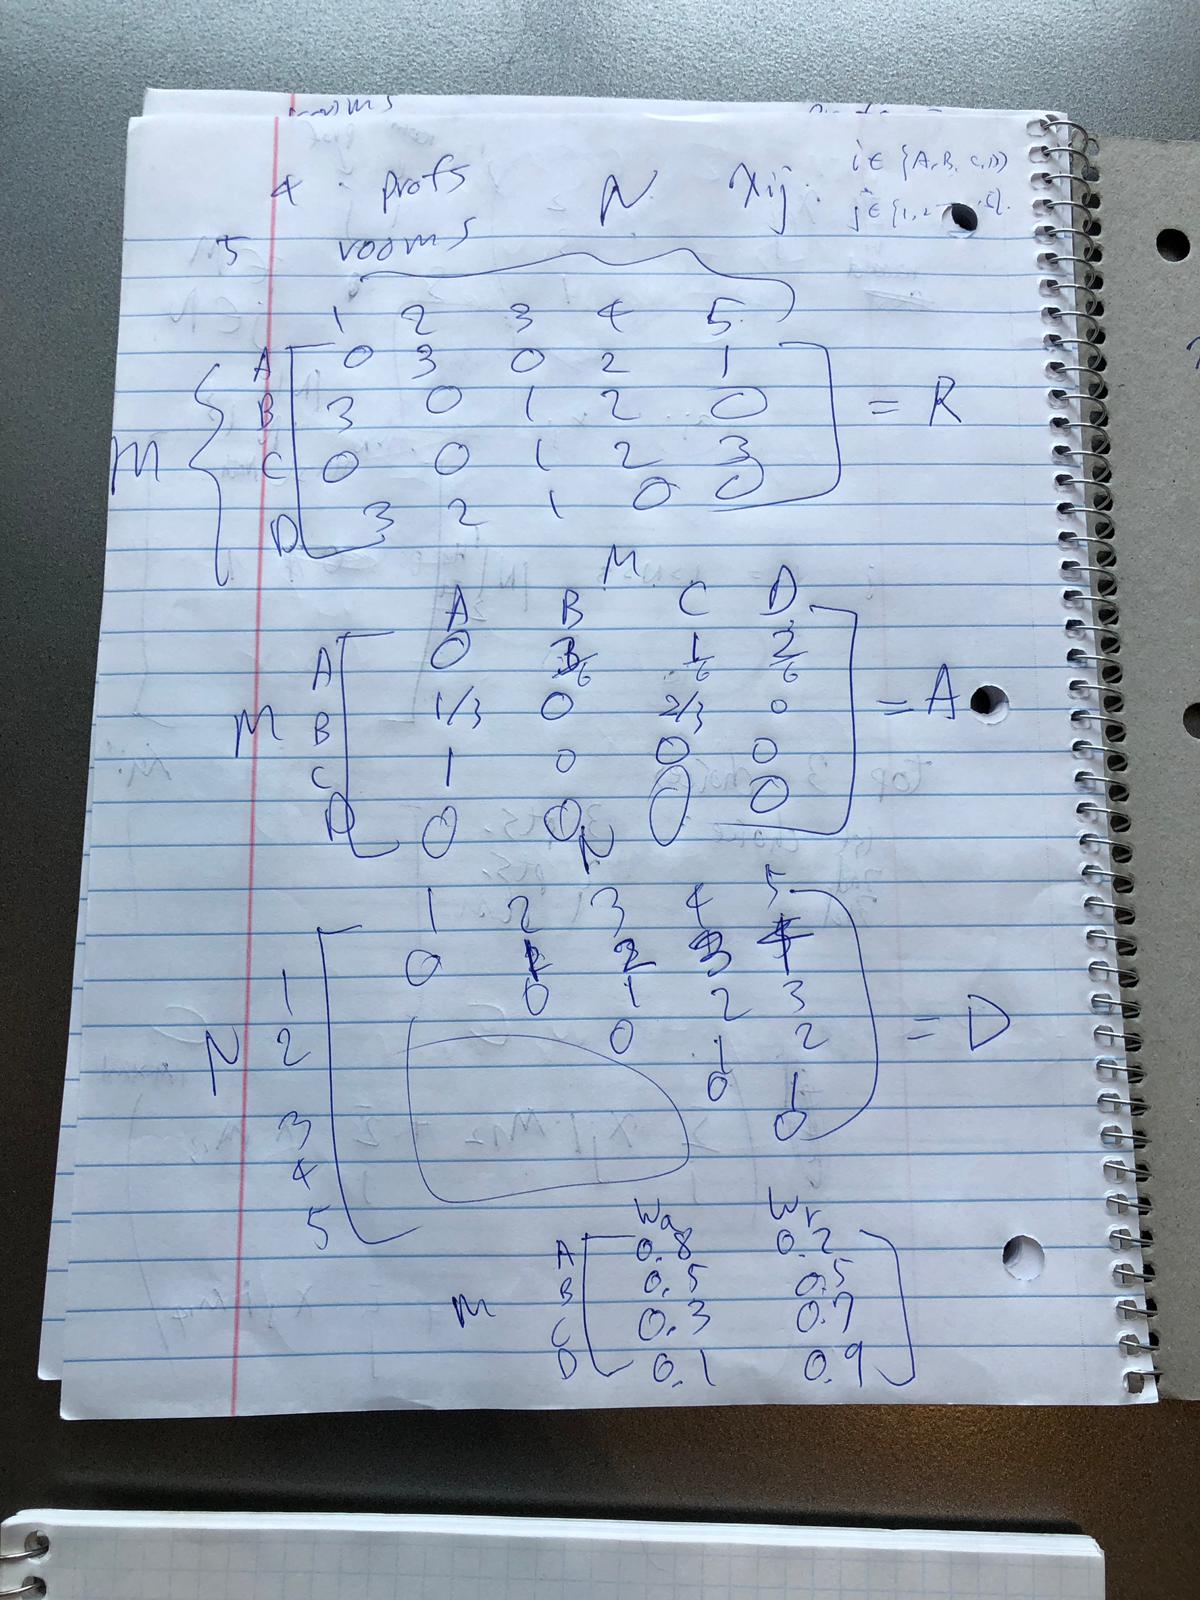 rooms
4 profs N Xij i ∈ {A, B, C, D}
j ∈ {1, 2 - - , 5}.
5 rooms
1 2 3 4 5
A 0 3 0 2 1
B 3 0 1 2 0 = R
M C 0 0 1 2 3
D 3 2 1 0 0
M
A B C D
A 0 3/6 1/6 2/6
M B 1/3 0 2/3 0 = A
C 1 0 0 0
D 0 0 0 0
N
1 2 3 4 5
1 0 1 2 3 4
0 1 2 3
N 2 0 1 2 = D
0 1
3 0
4
5
Wa Wr
A 0.8 0.2
B 0.5 0.5
M C 0.3 0.7
D 0.1 0.9